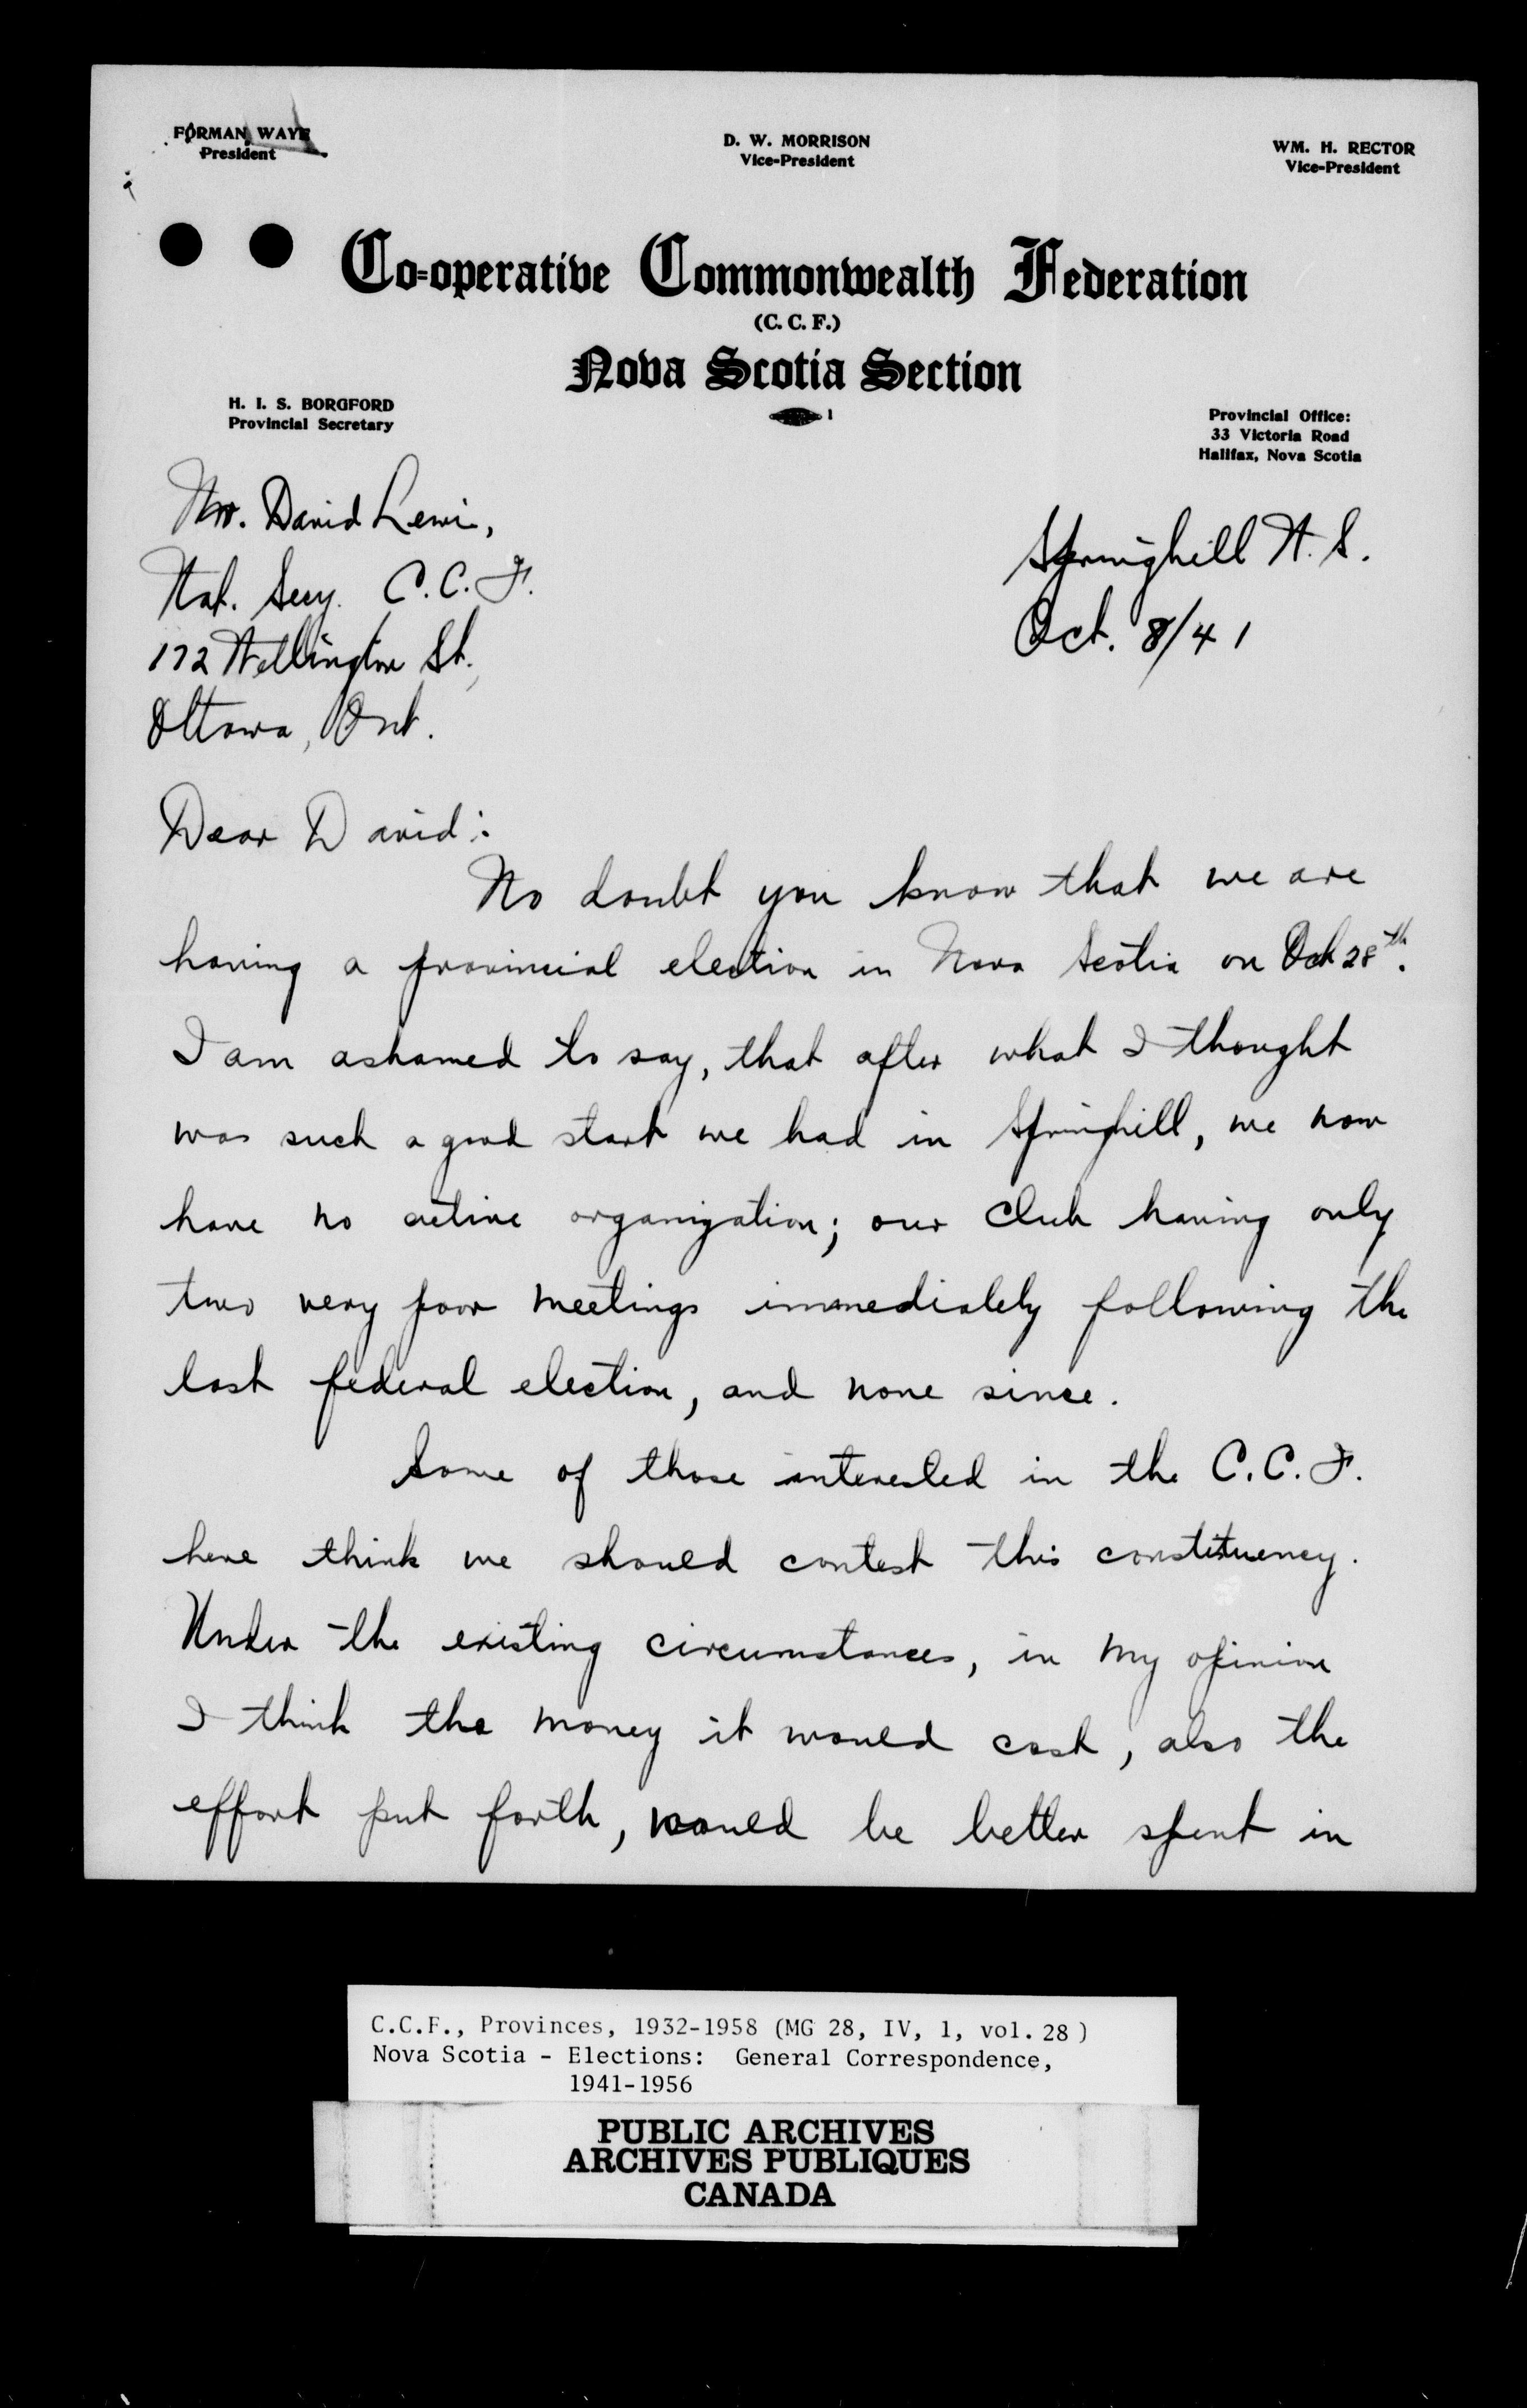 FORMAN WAYE
President
D. W. MORRISON
Vice-President
WM. H. RECTOR
Vice-President
Co-operative Commonwealth Federation
(C. C. F.)
Nova Scotia Section
H. I. S. BORGFORD
Provincial Secretary
Provincial Office:
33 Victoria Road
Halifax, Nova Scotia
Mr. David Lewis,
Nat. Secy. C.C.F.
172 Wellington St.,
Ottawa, Ont.
Springhill N.S.
Oct. 8/41
Dear David:
No doubt you know that we are
having a provincial election in Nova Scotia on Oct 28th.
I am ashamed to say, that after what I thought
was such a good start we had in Springhill, we now
have no active organization; our Club having only
two very poor meetings immediately following the
last federal election, and none since.
Some of those interested in the C.C.F.
here think we should contest this constituency.
Under the existing circumstances, in my opinion
I think the money it would cost, also the
effort put forth, would be better spent in
C.C.F., Provinces, 1932-1958 (MG 28, IV, 1, vol. 28)
Nova Scotia - Elections: General Correspondence,
1941-1956
PUBLIC ARCHIVES
ARCHIVES PUBLIQUES
CANADA